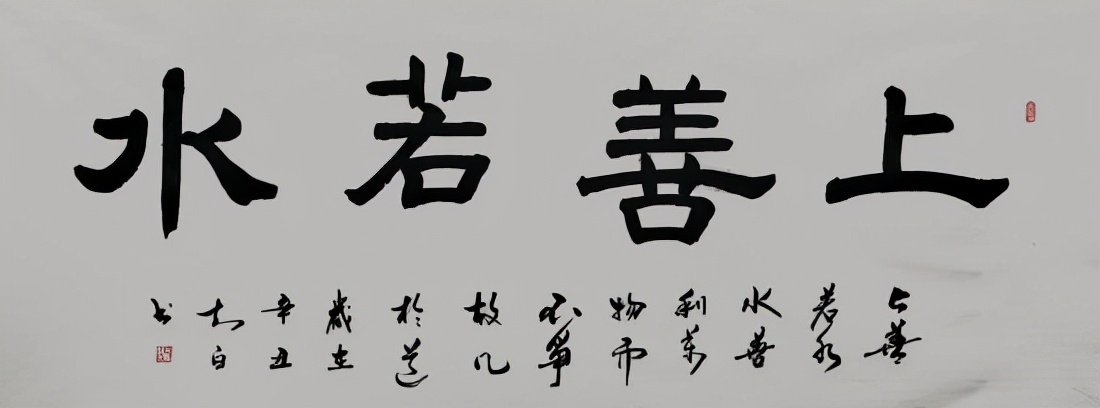 上善若水
上善
若水
水善
利萬
物而
不爭
故几
於道
歲在
辛丑
知白
书